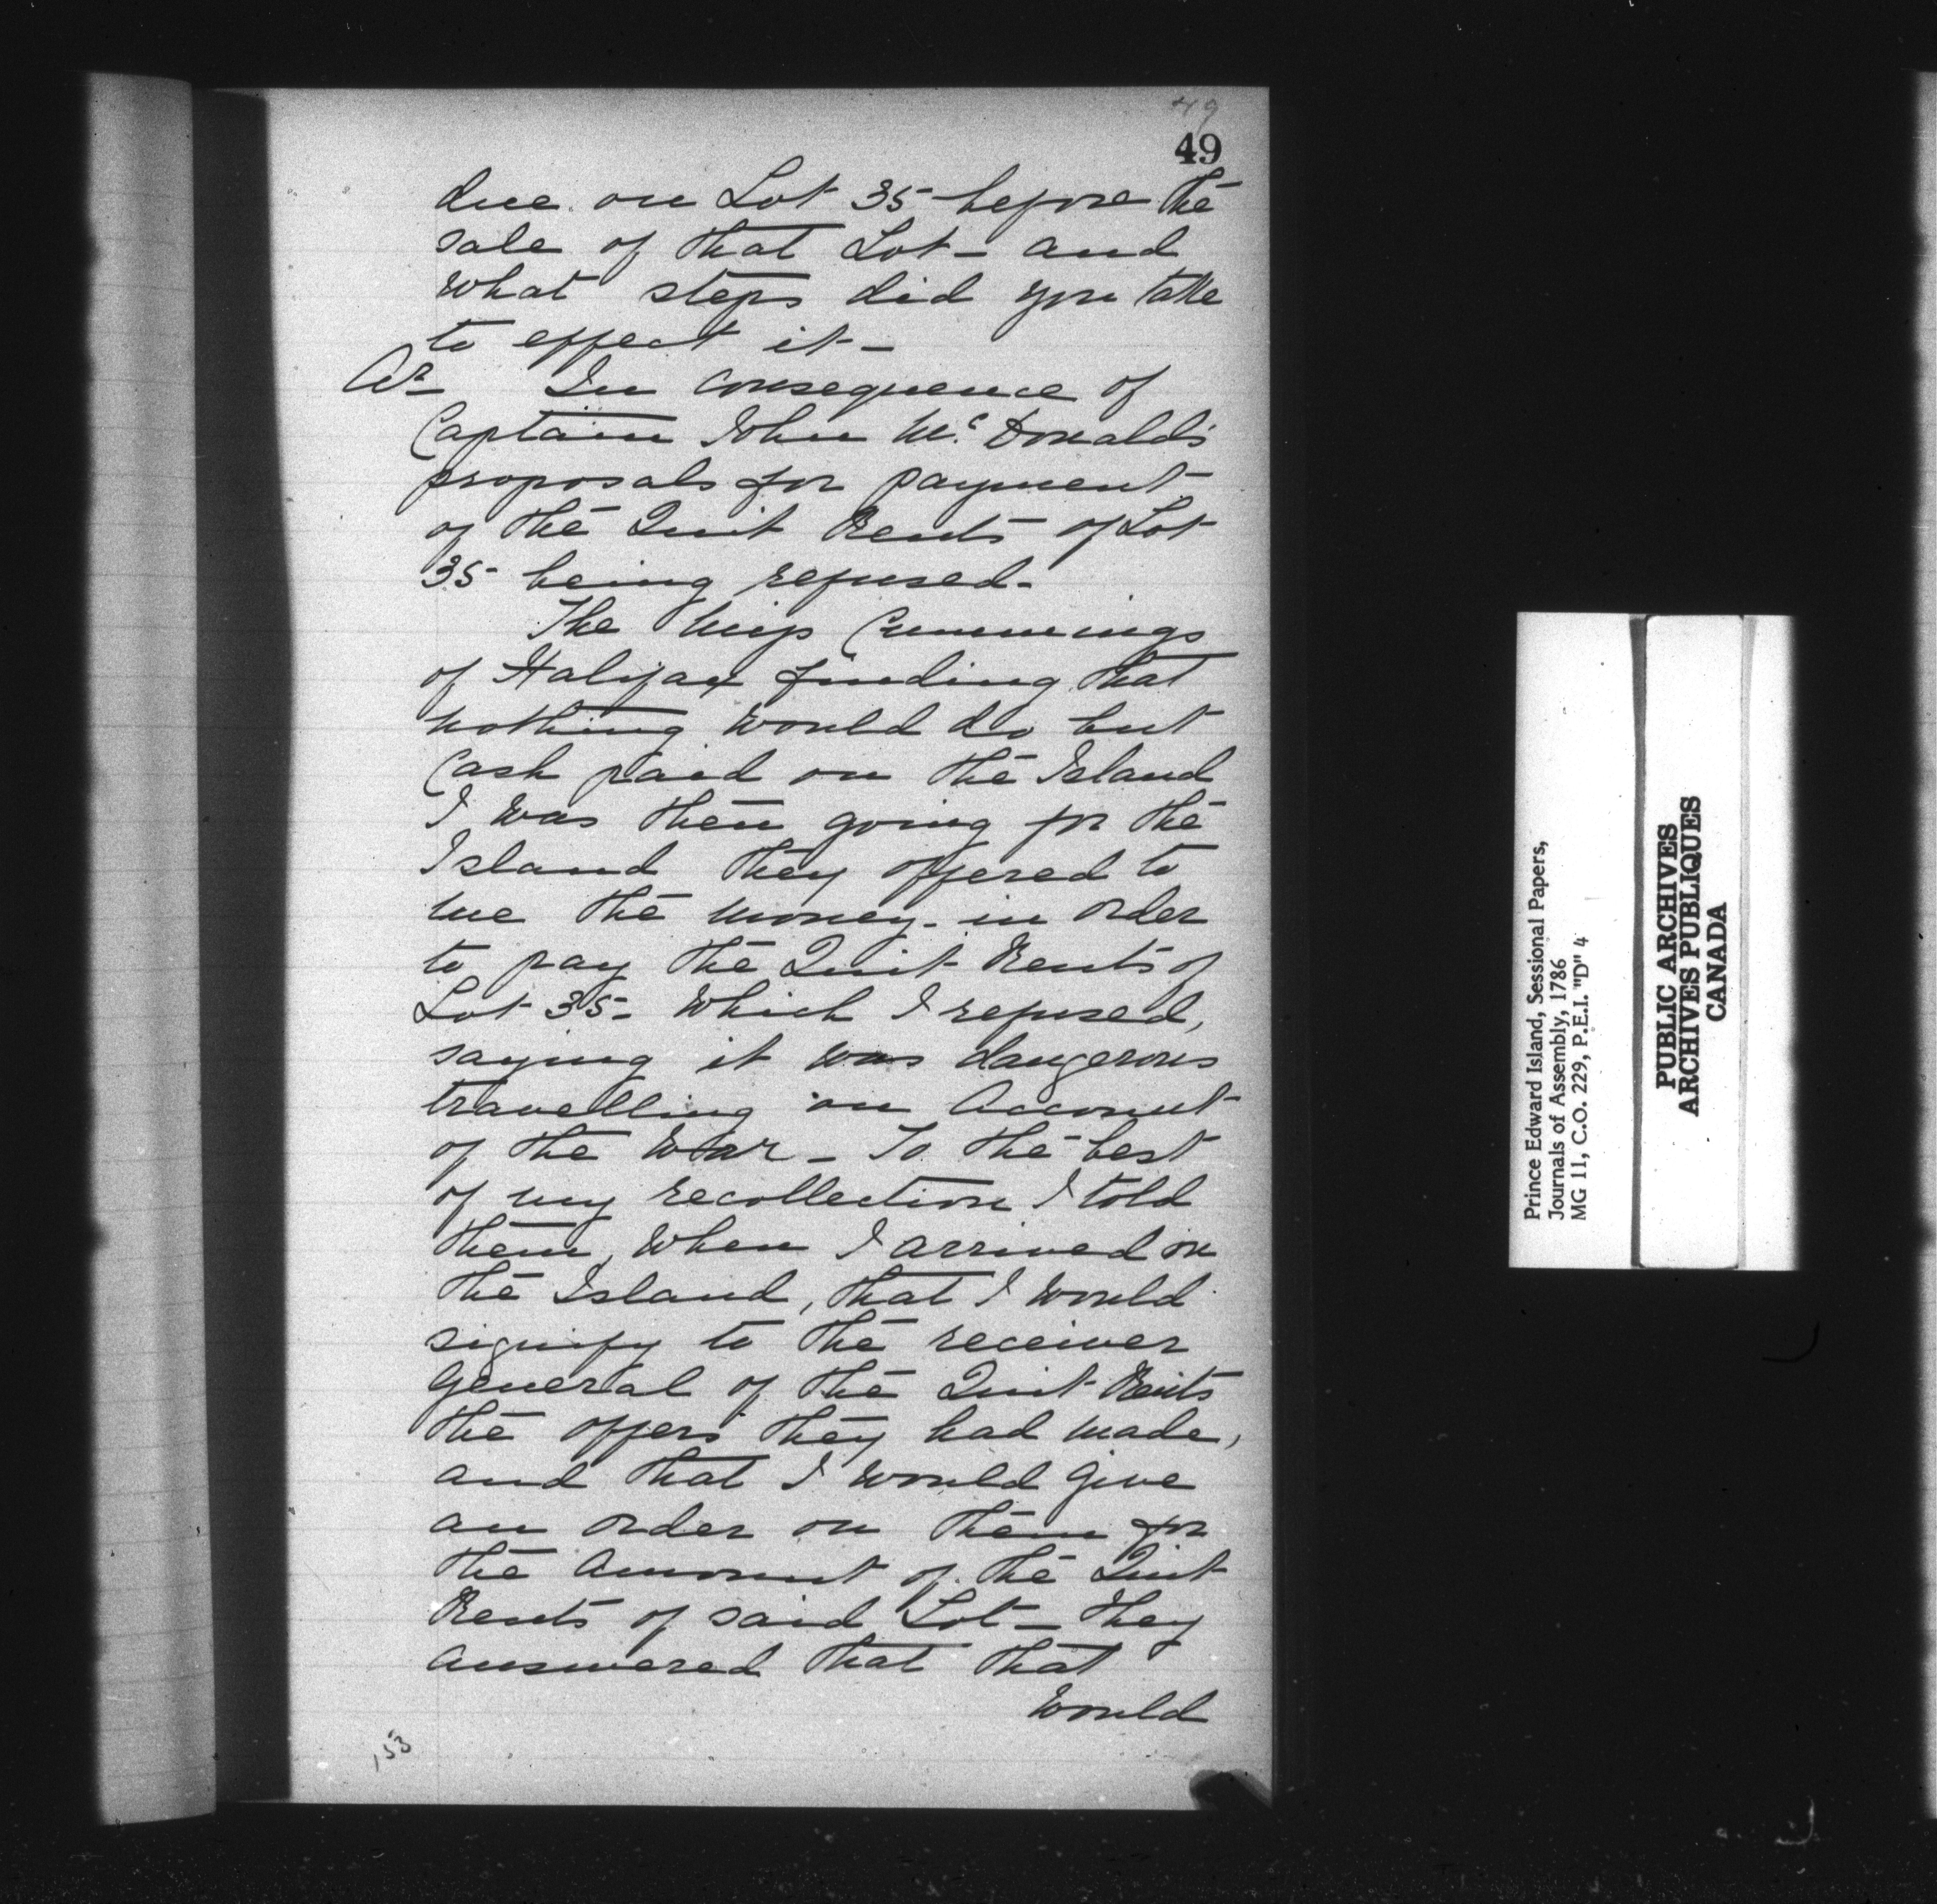 49
49
due on Lot 35 before the
sale of that Lot - and
what steps did you take
to effect it -
Ar - In consequence of
Captain John Mc. Donald's
proposals for payment
of the Quit Rents of Lot
35 being refused -
The Miss Cummings
of Halifax finding that
nothing would do but
Cash paid on the Island
I was then going for the
Island they offered to
me the money - in order
to pay the Quit Rents of
Lot 35 - which I refused,
saying it was dangerous
travelling on Account
of the War - To the best
of my recollection I told
them, when I arrived on
the Island, that I would
signify to the receiver
General of the Quit Rents
the offers they had made,
and that I would give
an order on them for
the Amount of the Quit
Rents of said Lot - they
answered that that
would
153
Prince Edward Island, Sessional Papers,
Journals of Assembly, 1786
MG 11, C.O. 229, P.E.I. "D" 4
PUBLIC ARCHIVES
ARCHIVES PUBLIQUES
CANADA